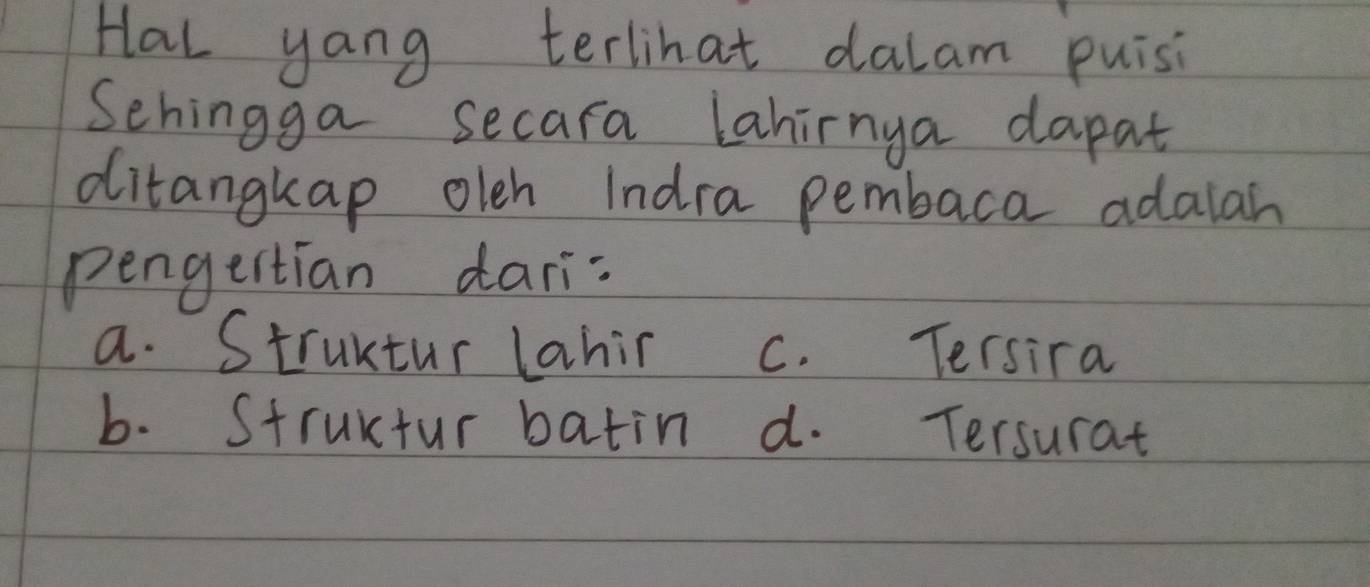 Hal yang terlihat dalam puisi
Sehingga secara lahirnya dapat
ditangkap oleh Indra pembaca adalah
pengertian dari:
a. Struktur lahir c. Tersira
b. Struktur batin d. Tersurat